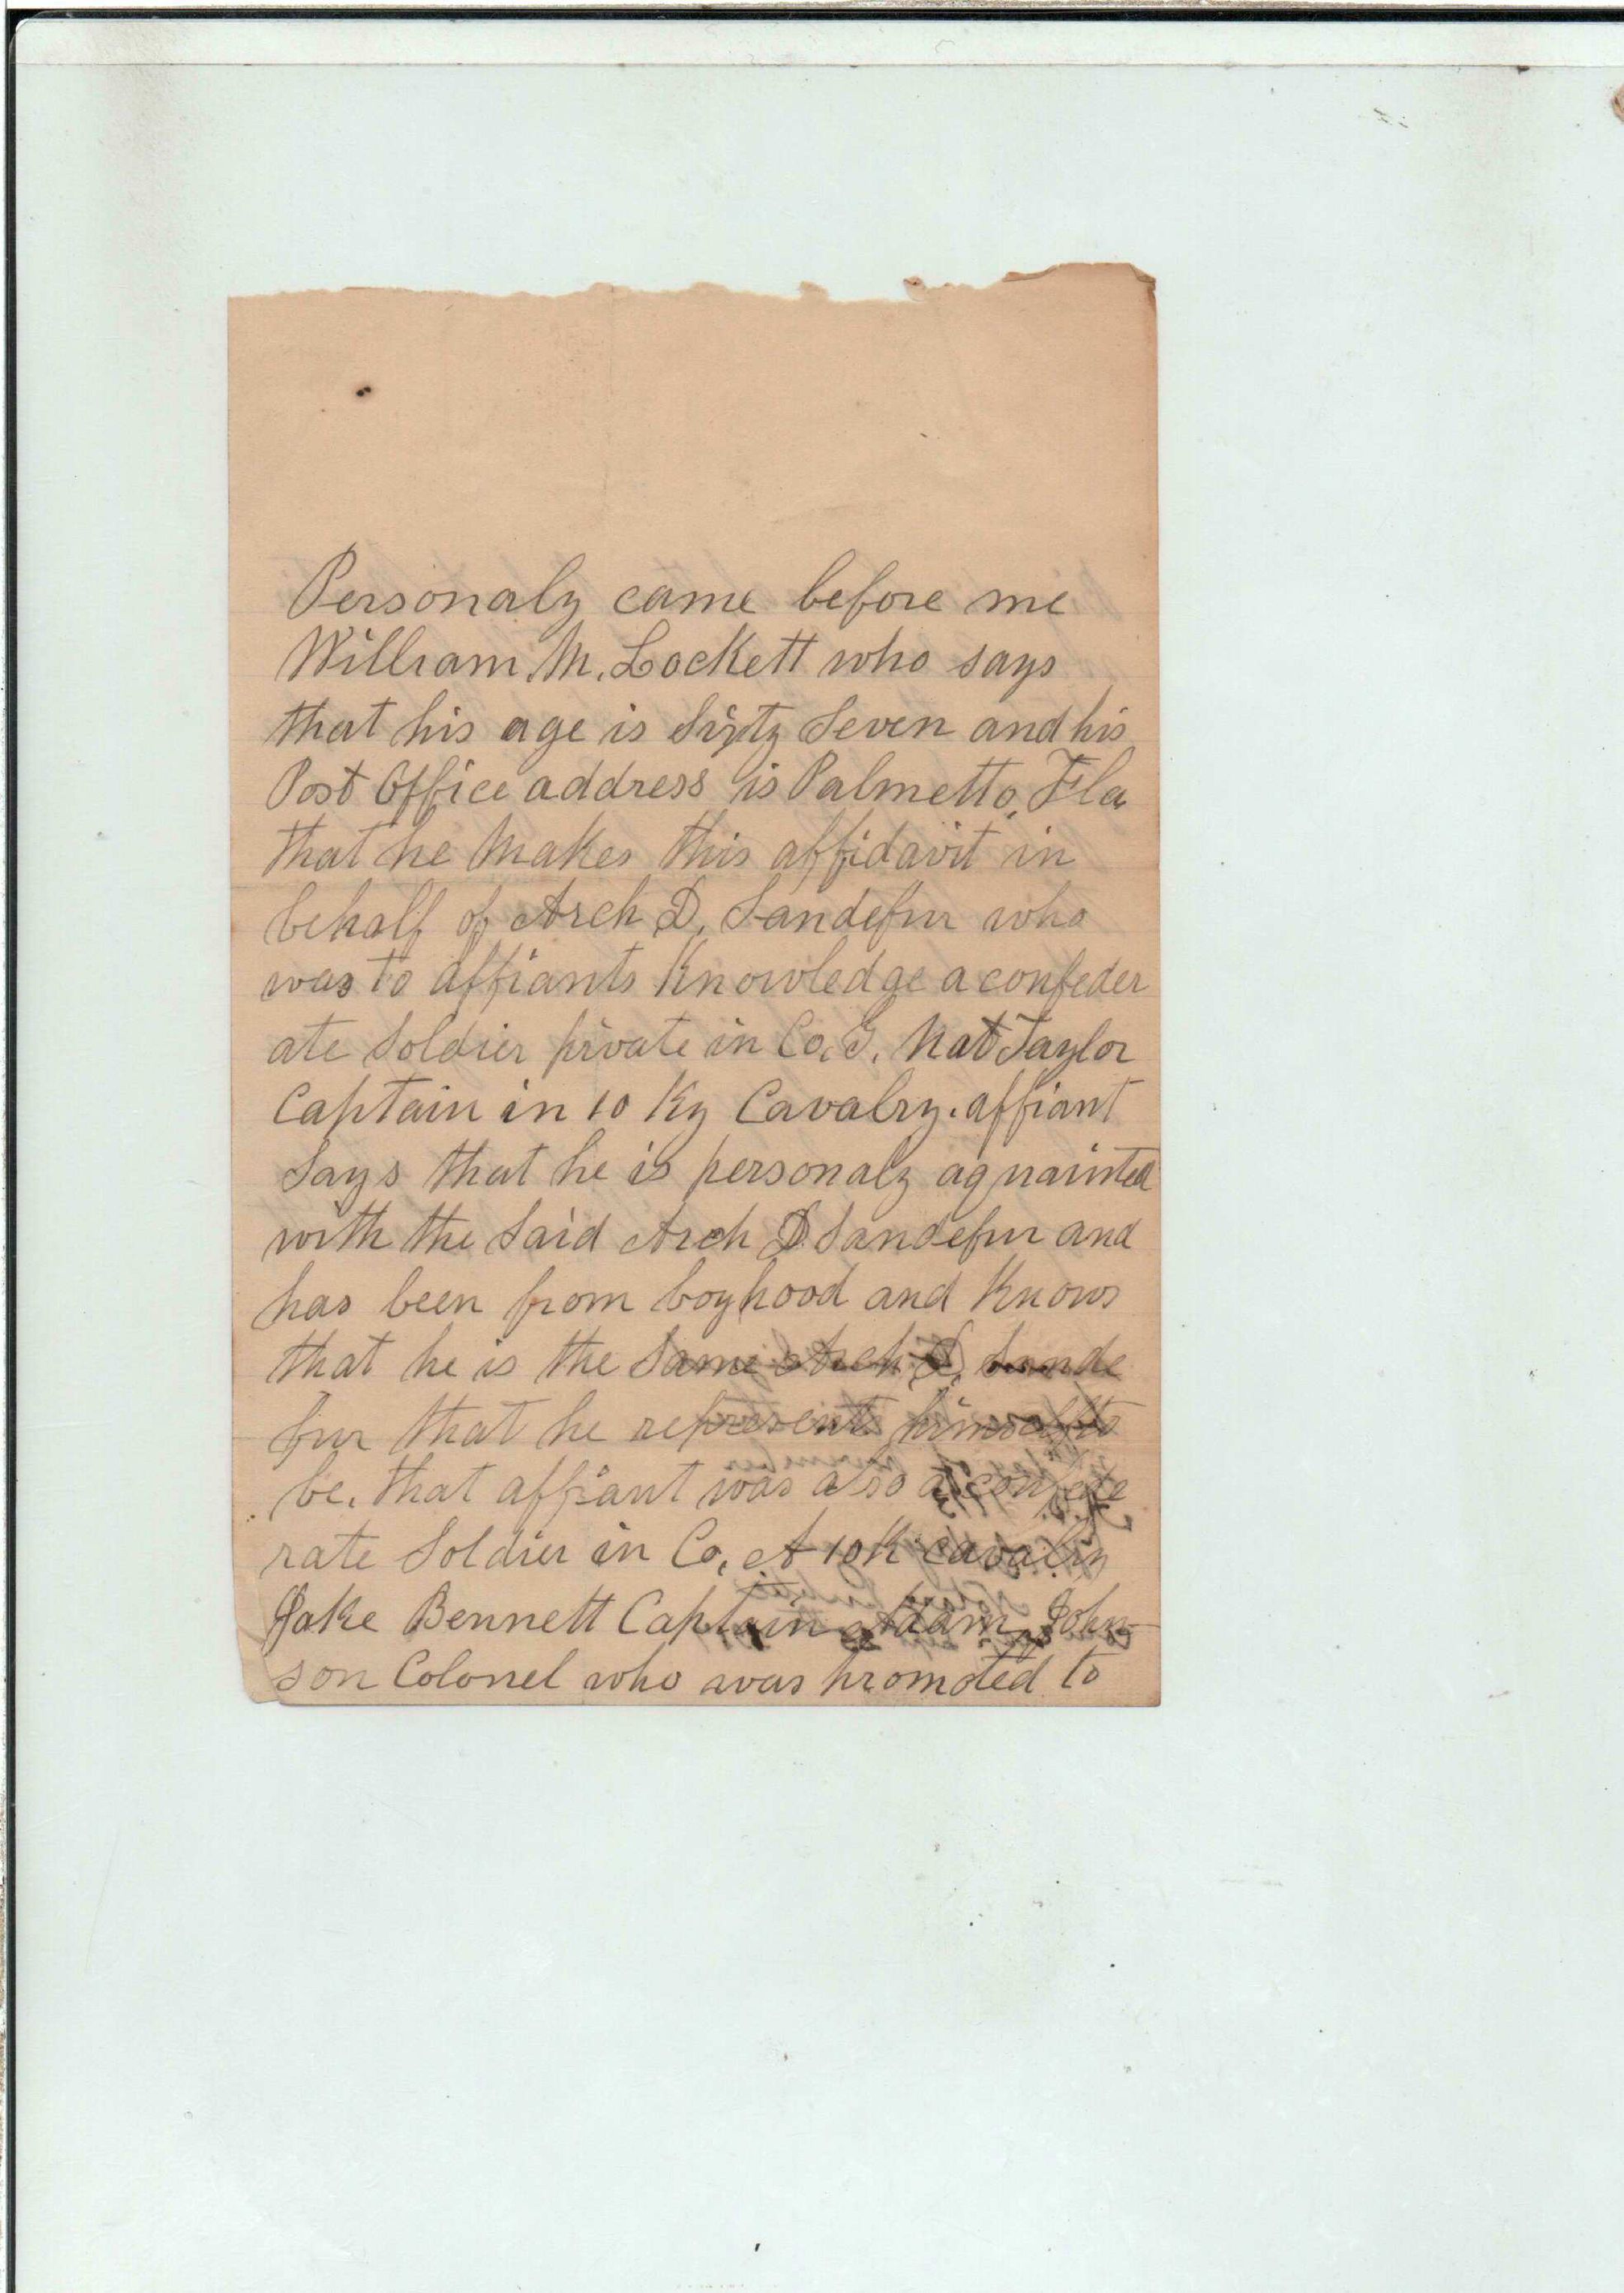 Personaly came before me
William M. Lockett who says
that his age is Sixty Seven and his
Post Office address is Palmetto, Fla
that he makes this affidavit in
behalf of Arch D. Sandefur who
was to affiants Knowledge a confeder
ate Soldier private in Co. G. Nat Taylor
Captain in 10 Ky Cavalry. affiant
Says that he is personaly aquainted
with the Said Arch D Sandefur and
has been from boyhood and Knows
that he is the Same Arch D. Sande
fur that he represents himself to
be. that affiant was also a confede
rate Soldier in Co. A 10 K cavalry
Jake Bennett Captain Adam John-
son Colonel who was promoted to